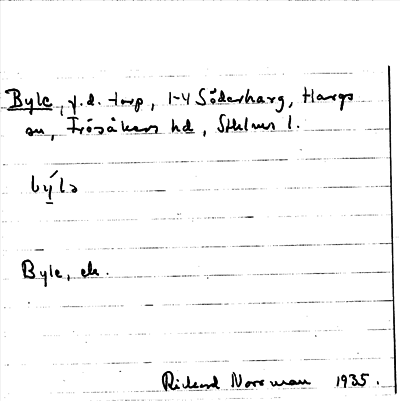 Byle, f.d. torp, 1-4 Söderharg, Hargs
sn, Frösåkers hd, Sthlms l.
bý̲lə
Byle, ek.
Rickard Norrman 1935.